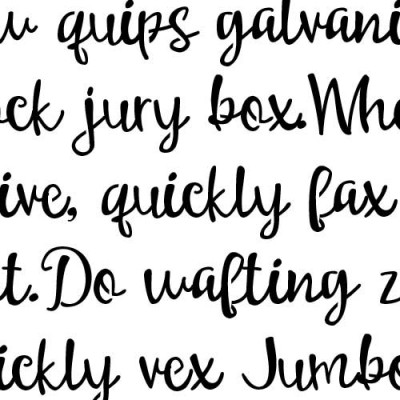 w quips galvani
ock jury box.Wha
ive, quickly fax
t.Do wafting z
ickly vex Jumbo